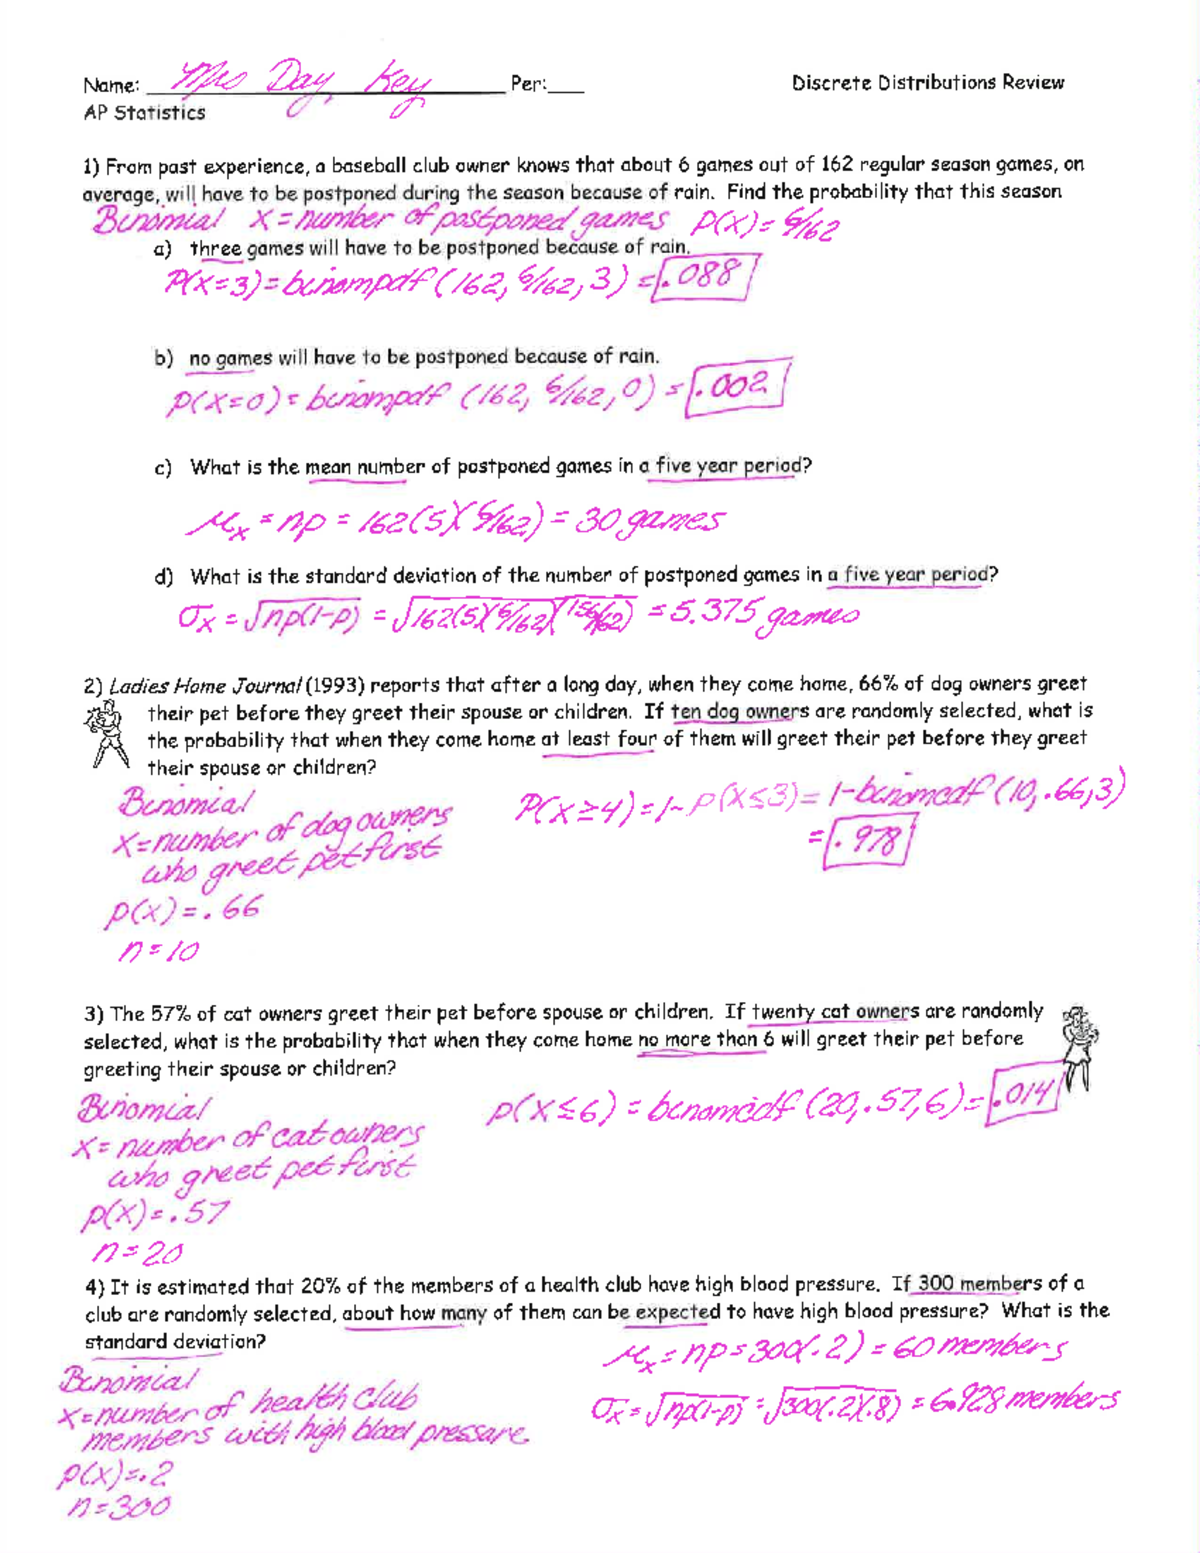 Name: Mrs Day Key Per:____ Discrete Distributions Review
AP Statistics
1) From past experience, a baseball club owner knows that about 6 games out of 162 regular season games, on
average, will have to be postponed during the season because of rain. Find the probability that this season
Binomial X = number of postponed games P(X) = 6/162
a) three games will have to be postponed because of rain.
P(X=3) = binompdf (162, 6/162, 3) = .088
b) no games will have to be postponed because of rain.
P(X=0) = binompdf (162, 6/162, 0) = .002
c) What is the mean number of postponed games in a five year period?
μx = np = 162(5)(6/162) = 30 games
d) What is the standard deviation of the number of postponed games in a five year period?
σx = √np(1-p) = √162(5)(6/162)(156/162) = 5.375 games
2) Ladies Home Journal (1993) reports that after a long day, when they come home, 66% of dog owners greet
their pet before they greet their spouse or children. If ten dog owners are randomly selected, what is
the probability that when they come home at least four of them will greet their pet before they greet
their spouse or children?
Binomial
X = number of dog owners
who greet pet first
P(X) = .66
n = 10
P(X ≥ 4) = 1 - P(X ≤ 3) = 1 - binomcdf (10, .66, 3)
= .978
3) The 57% of cat owners greet their pet before spouse or children. If twenty cat owners are randomly
selected, what is the probability that when they come home no more than 6 will greet their pet before
greeting their spouse or children?
Binomial
X = number of cat owners
who greet pet first
P(X) = .57
n = 20
P(X ≤ 6) = binomcdf (20, .57, 6) = .014
4) It is estimated that 20% of the members of a health club have high blood pressure. If 300 members of a
club are randomly selected, about how many of them can be expected to have high blood pressure? What is the
standard deviation?
Binomial
X = number of health club
members with high blood pressure
P(X) = .2
n = 300
μx = np = 300(.2) = 60 members
σx = √np(1-p) = √300(.2)(.8) = 6.928 members